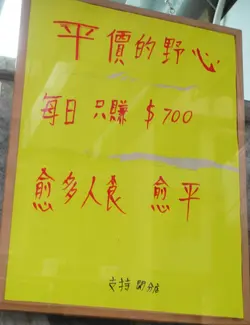 平價的野心
每日 只賺 $700
愈多人食 愈平
支持